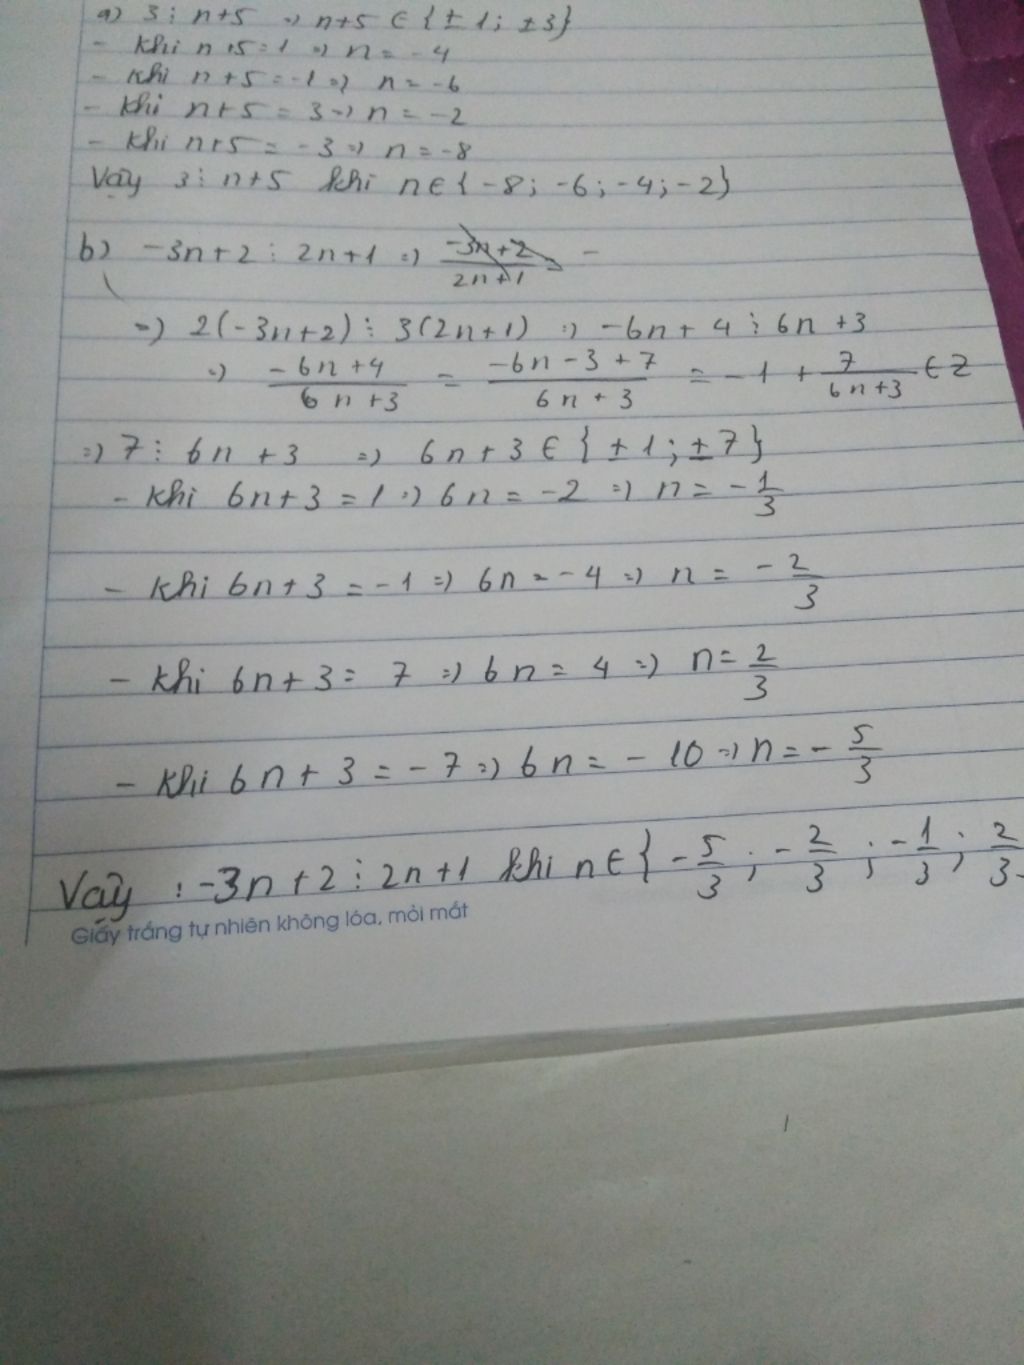 a) 3 ⋮ n+5 => n+5 ∈ {±1; ±3}
- Khi n+5=1 => n = -4
- Khi n+5 = -1 => n = -6
- Khi n+5 = 3 => n = -2
- Khi n+5 = -3 => n = -8
Vậy 3 ⋮ n+5 khi n ∈ {-8; -6; -4; -2}
b) -3n+2 ⋮ 2n+1 => (-3n+2)/(2n+1) =
=> 2(-3n+2) ⋮ 3(2n+1) => -6n+4 ⋮ 6n+3
=> (-6n+4)/(6n+3) = (-6n-3+7)/(6n+3) = -1 + 7/(6n+3) ∈ Z
=> 7 ⋮ 6n+3 => 6n+3 ∈ {±1; ±7}
- Khi 6n+3 = 1 => 6n = -2 => n = -1/3
- Khi 6n+3 = -1 => 6n = -4 => n = -2/3
- Khi 6n+3 = 7 => 6n = 4 => n = 2/3
- Khi 6n+3 = -7 => 6n = -10 => n = -5/3
Vậy : -3n+2 ⋮ 2n+1 khi n ∈ {-5/3; -2/3; -1/3; 2/3
Giấy trắng tự nhiên không lóa, mỏi mắt